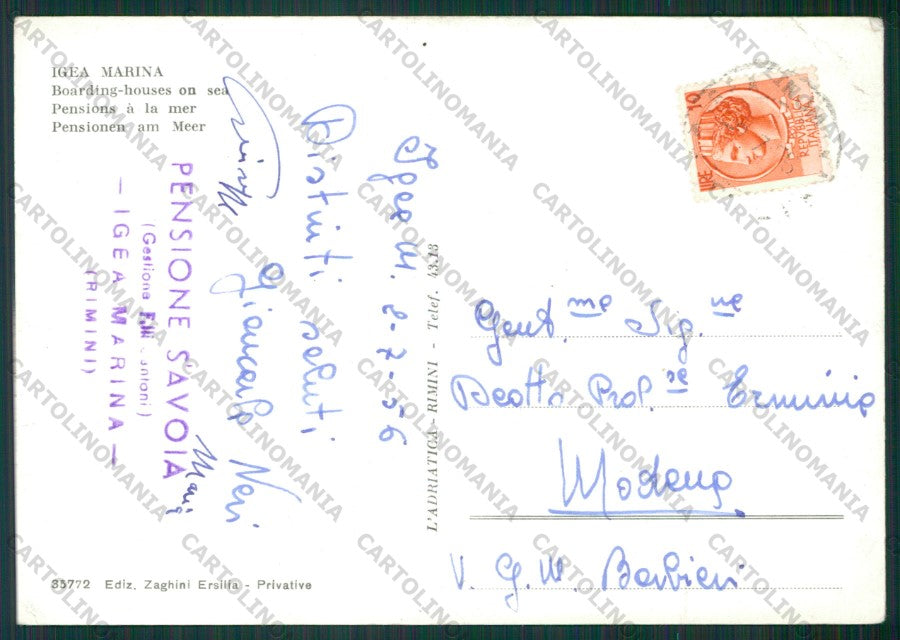 IGEA MARINA
Boarding-houses on sea
Pensions à la mer
Pensionen am Meer
PENSIONE SAVOIA
(Gestione F.lli antoni)
— IGEA MARINA —
(RIMINI)
Igea M. 2-7-56
Distinti saluti
Giancarlo Neri
L'ADRIATICA - RIMINI - Telef. 43.13
LIRE 10
POSTE
REPVBBLICA
ITALIANA
Gent.me Sig.ne
Beotti Prof.re Erminia
Modena
V. G. M. Barbieri
35772 Ediz. Zaghini Ersilia - Privative
CARTOLINOMANIA